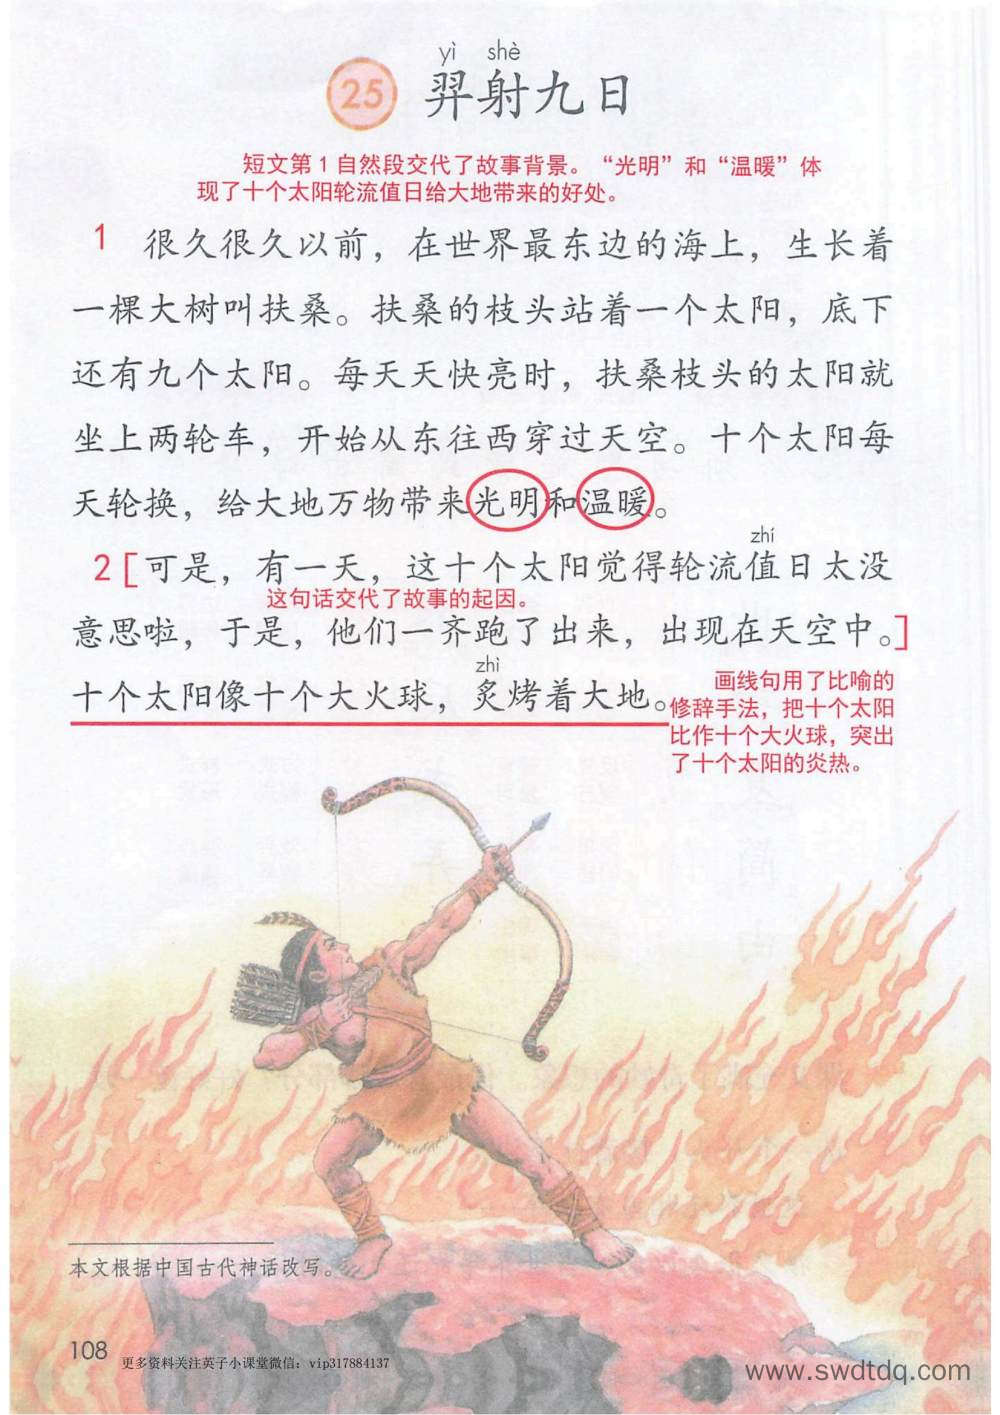 yì shè
25 羿射九日
短文第1自然段交代了故事背景。“光明”和“温暖”体
现了十个太阳轮流值日给大地带来的好处。
1 很久很久以前，在世界最东边的海上，生长着
一棵大树叫扶桑。扶桑的枝头站着一个太阳，底下
还有九个太阳。每天天快亮时，扶桑枝头的太阳就
坐上两轮车，开始从东往西穿过天空。十个太阳每
天轮换，给大地万物带来光明和温暖。
zhí
2 [可是，有一天，这十个太阳觉得轮流值日太没
这句话交代了故事的起因。
意思啦，于是，他们一齐跑了出来，出现在天空中。]
zhì
十个太阳像十个大火球，炙烤着大地。
画线句用了比喻的
修辞手法，把十个太阳
比作十个大火球，突出
了十个太阳的炎热。
本文根据中国古代神话改写。
108
更多资料关注英子小课堂微信：vip317884137
www.swdtdq.com